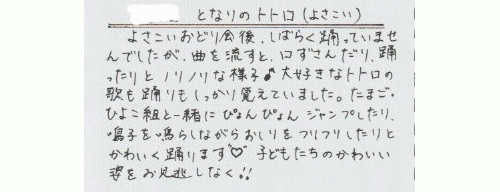 となりのトトロ(よさこい)
よさこいおどり会後、しばらく踊っていませ
んでしたが、曲を流すと、口ずさんだり、踊
ったりとノリノリな様子♪大好きなトトロの
歌も踊りもしっかり覚えていました。たまご・
ひよこ組と一緒にぴょんぴょんジャンプしたり、
鳴子を鳴らしながらおしりをフリフリしたりと
かわいく踊ります♡子どもたちのかわいい
姿をお見逃しなく!!